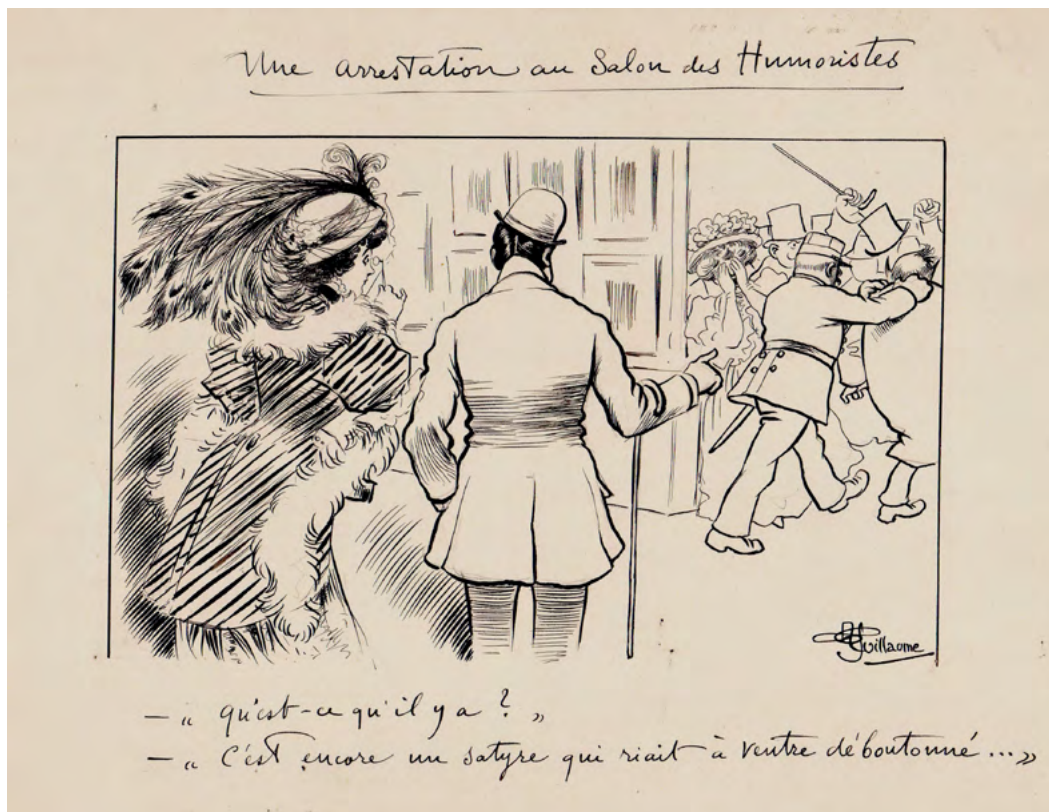 Une arrestation au Salon des Humoristes
AGuillaume
— „ qu'est-ce qu'il y a ? „
— „ C'est encore un satyre qui riait à ventre déboutonné ... „